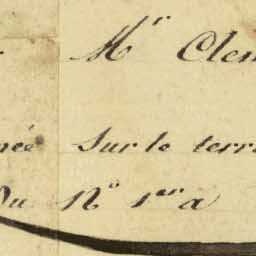 Mr Clem
née Sur le terr
Du No 1er a